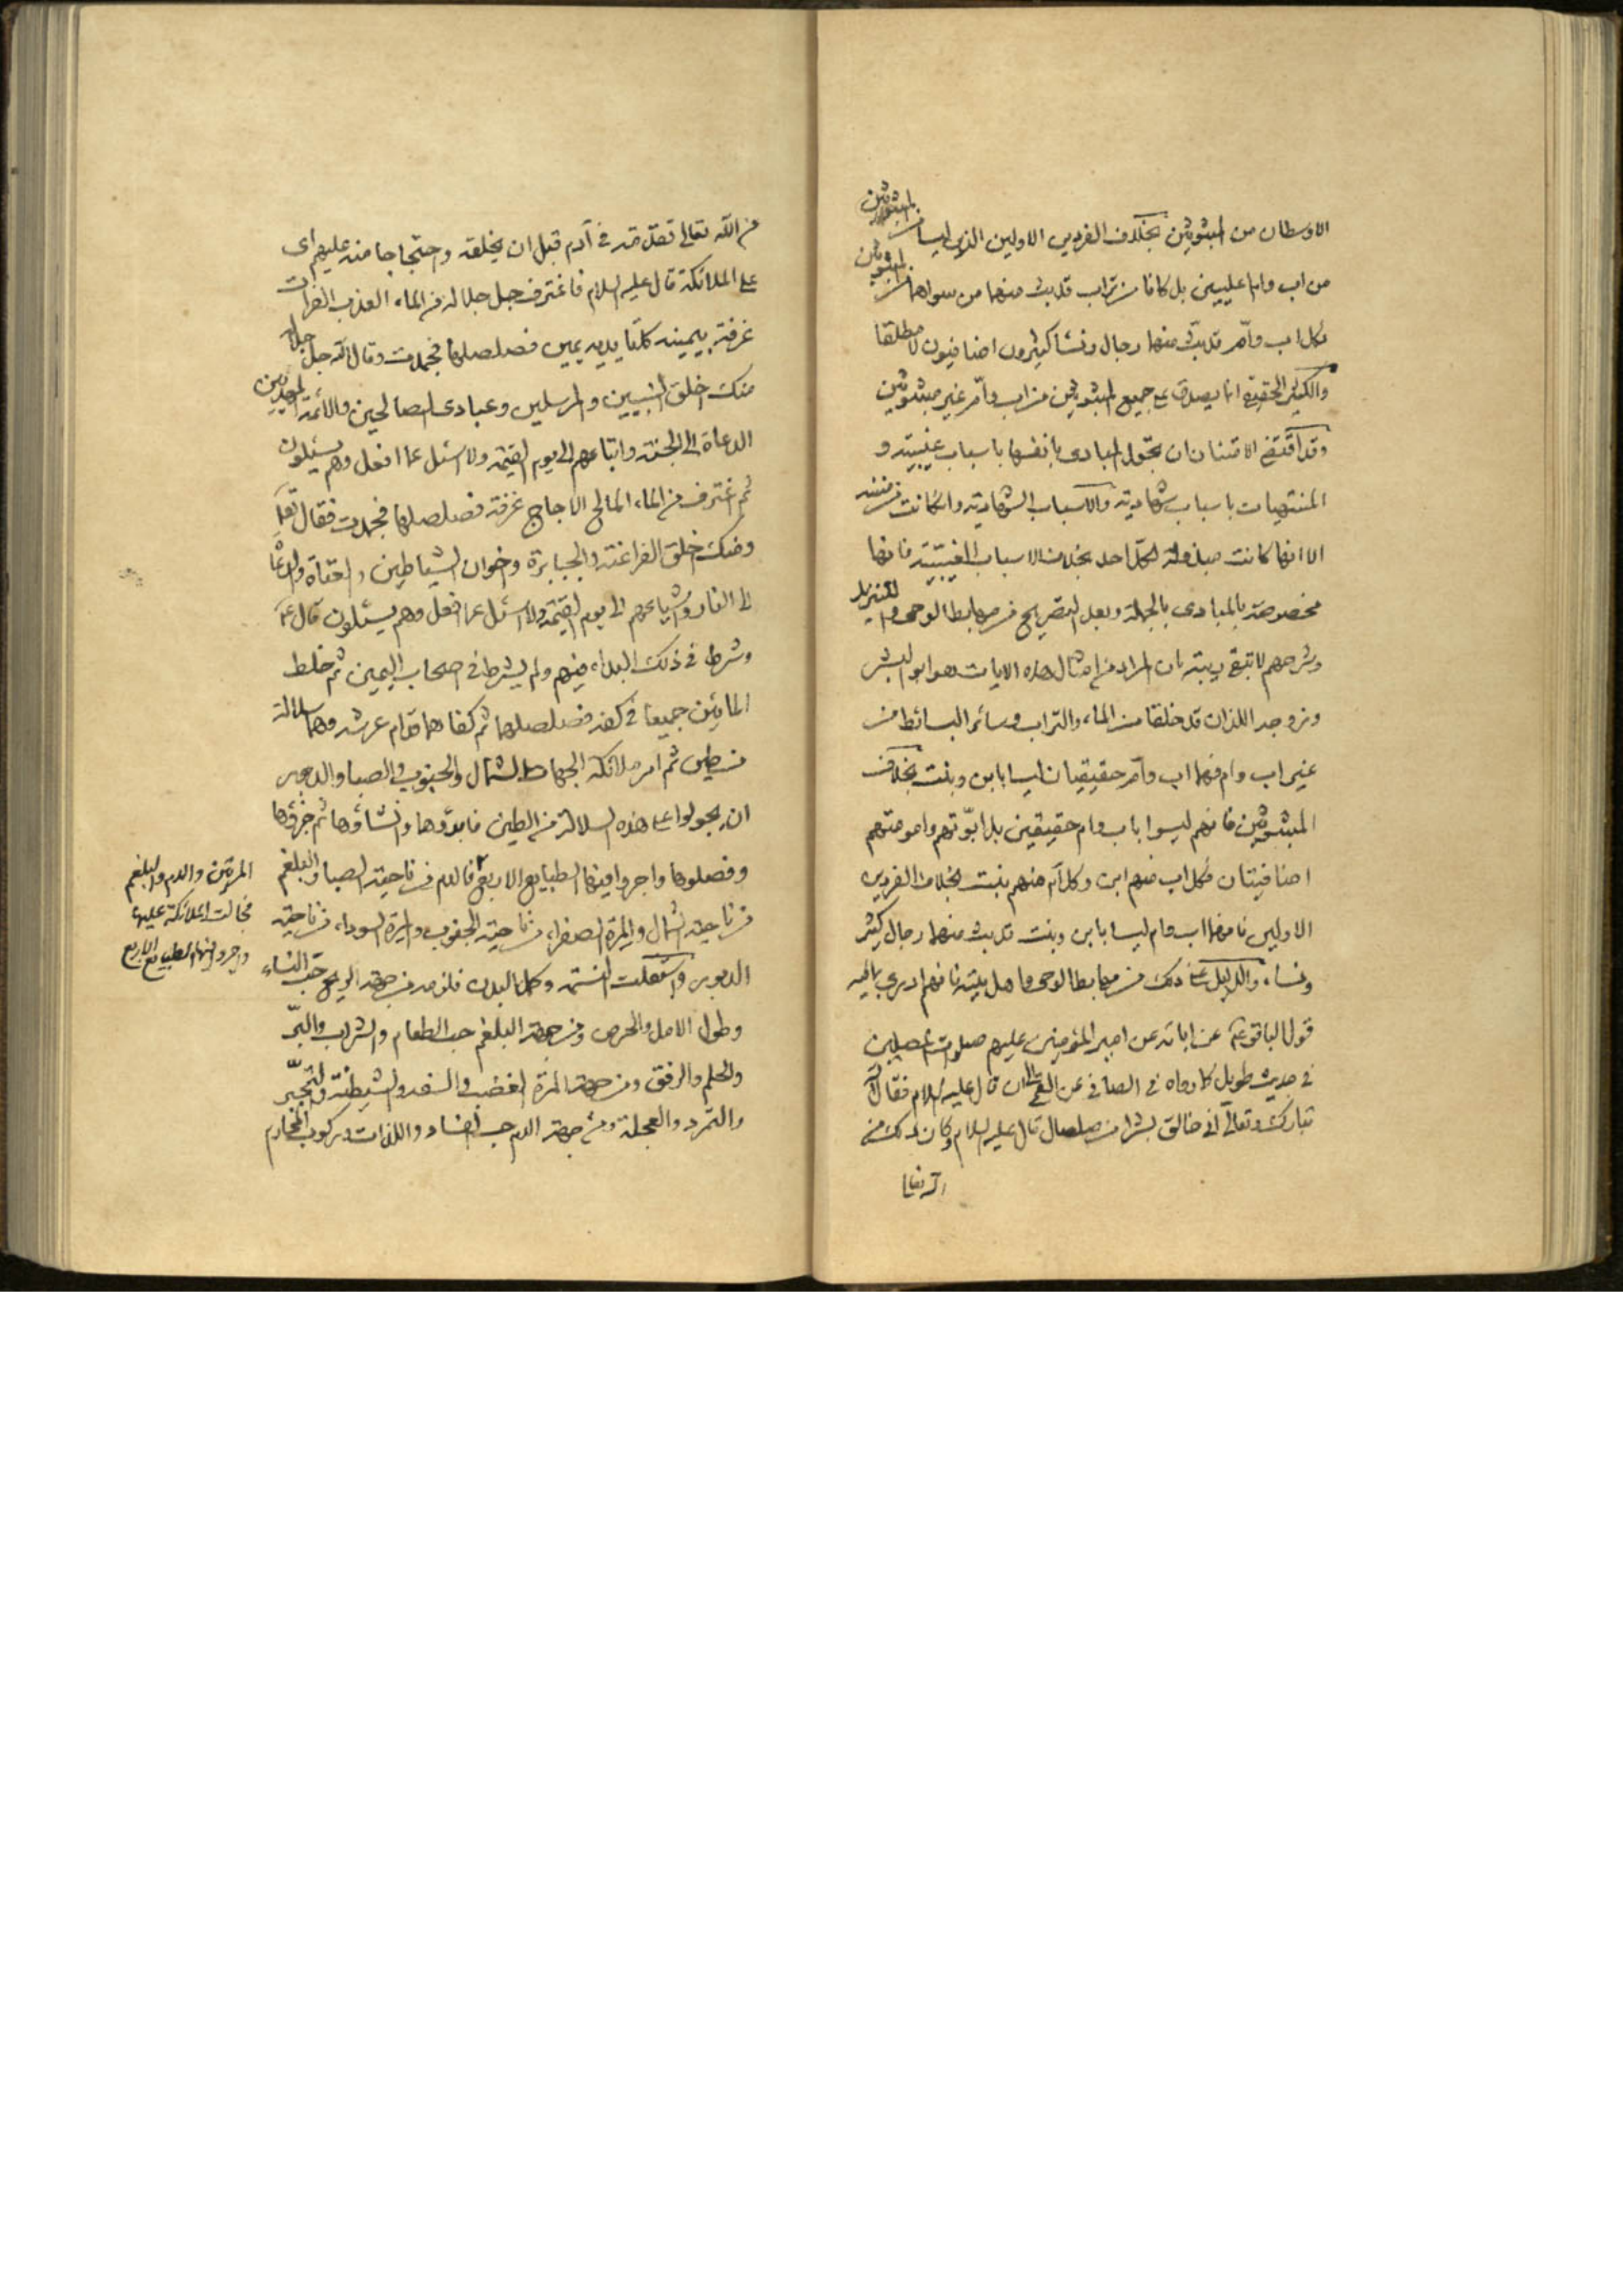 الاوسطان من المبثوثين بخلاف الفردين الاولين الذين ليسا من المبثوثين
من اب وام عليين بل كانا من تراب قد بث منهما من سواهما من المبثوثين
فكل اب وام قد بث منهما رجال ونسا كثيرون اضافيون لا مطلقا
والكل الحقيقة انما يصدق على جميع المبثوثين من اب وام غير مبثوثين
وقد اقتضى الامتنان ان تحول المبادى بانفسها باسباب غيبية و
المنتهيات باسباب شهادية والاسباب الشهادية وان كانت من
الا انها كانت مبذولة لكل احد بخلاف الاسباب الغيبية فانها
مخصوصة بالمبادى بالجملة وبعد التصريح من مهابط الوحى والتنزيل
وشرحهم لا تبقى ريبة بان المراد من امثال هذه الايات هو ابو البشر
وزوجه اللذان قد خلقا من الماء والتراب وسائر البسائط من
غير اب وام فهما اب وام حقيقيان ليسا بابن وبنت بخلاف
المبثوثين فانهم ليسوا باب وام حقيقين بل ابوتهم وامومتهم
اضافيتان فكل اب منهم ابن وكل ام منهم بنت بخلاف الفردين
الاولين فانهما اب وام ليسا بابن وبنت قد بث منهما رجال كثير
ونساء والدليل على ذلك من مهابط الوحى واهل بيته فانهم ادرى بما فيه
قول الباقر ع عن ابائه عن امير المؤمنين عليهم صلوات المصلين
فى حديث طويل كما رواه فى الصافى عن العلل قال عليه السلام فقال الله
تبارك وتعالى انى خالق بشرا من صلصال قال عليه السلام وكان ذلك من
الله تعالى
من الله تعالى تقدمة فى آدم قبل ان يخلقه واحتجاجا منه عليهم اى
على الملائكة قال عليه السلام فاغترف جل جلاله من الماء العذب الفرات
غرفة بيمينه كلتا يديه يمين فصلصلها فجمدت وقال الله جل جلاله
منك اخلق النبيين والمرسلين وعبادى الصالحين والائمة المهديين
الدعاة الى الجنة واتباعهم الى يوم القيمة ولا اسئل عما افعل وهم يسئلون
ثم اغترف من الماء المالح الاجاج غرفة فصلصلها فجمدت فقال تعالى
ومنك اخلق الفراعنة والجبابرة واخوان الشياطين والعتاة والدعاة
الى النار واشياعهم الى يوم القيمة ولا اسئل عما افعل وهم يسئلون قال ع
وشرط فى ذلك البداء فيهم ولم يشرط فى اصحاب اليمين ثم خلط
المائين جميعا فى كفه فصلصلهما ثم كفاهما قدام عرشه وهما سلالة
من طين ثم امر ملائكة الجهات الشمال والجنوب والصبا والدبور
ان يجولوا على هذه السلالة من الطين فابدؤها وانشاؤها ثم جزؤها
وفصلوها واجروا فيها الطبايع الاربع فالدم من ناحية الصبا والبلغم
من ناحية الشمال والمرة الصفراء من ناحية الجنوب والمرة السوداء من ناحية
الدبور واستقلت النسمة وكمل البدن فلزمه من جهة الريح حب النساء
وطول الامل والحرص ومن جهة البلغم حب الطعام والشراب والبر
والحلم والرفق ومن جهة المرة الغضب والسفه والشيطنة والتجبر
والتمرد والعجلة ومن جهة الدم حب الفساد واللذات وركوب المحارم
المرتين والدم والبلغم
فجالت الملائكة عليها
واجروا فيها الطبايع الاربع